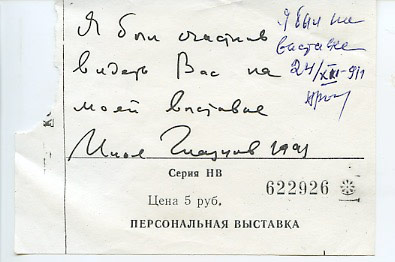 Я был счастлив
видеть Вас на
моей выставке
Илья Глазунов 1991
Я был на
выставке
24/XII-91
Серия НВ
622926
Цена 5 руб.
ПЕРСОНАЛЬНАЯ ВЫСТАВКА